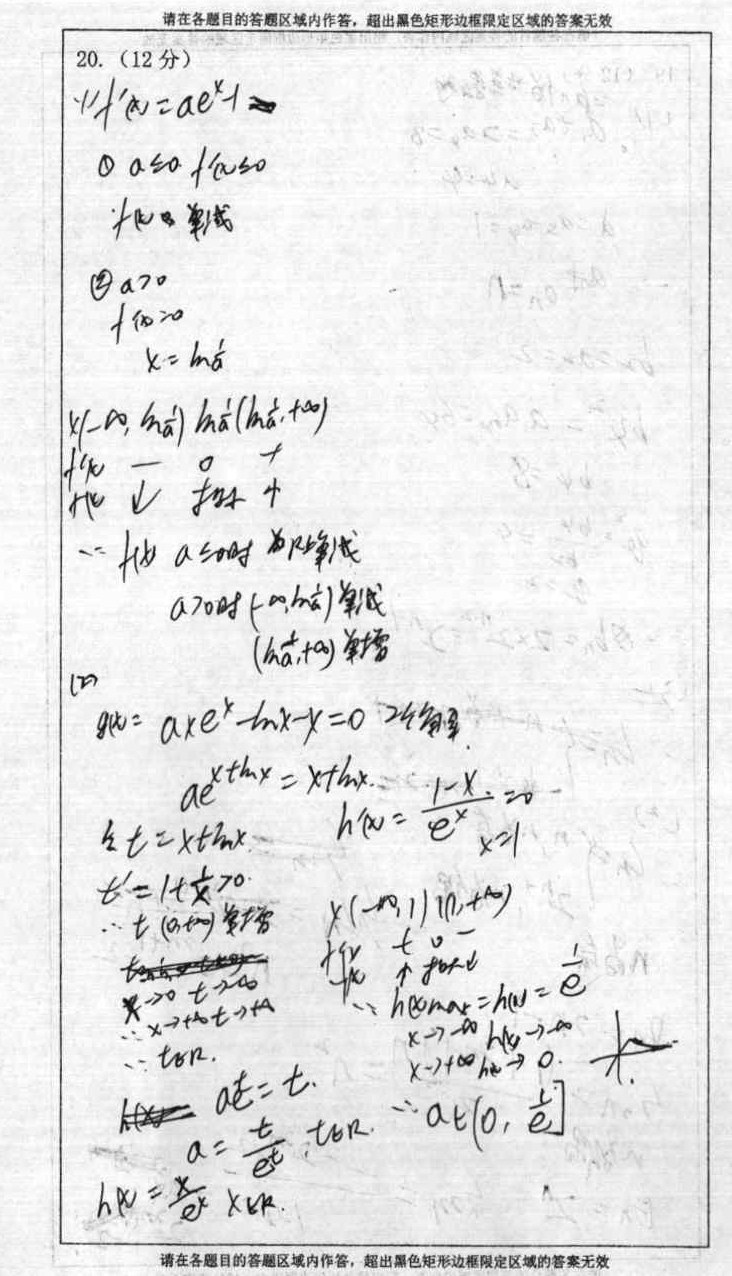 请在各题目的答题区域内作答，超出黑色矩形边框限定区域的答案无效
20.（12分）
(1) f'(x)=ae^x-1
① a≤0 f'(x)≤0
f(x) 单减
② a>0
f'(x)=0
x=ln 1/a
x (-∞, ln 1/a) ln 1/a (ln 1/a, +∞)
f'(x) — 0 +
f(x) ↓ 极小 ↑
∴ f(x) a≤0时 为R上单减
a>0时 (-∞, ln 1/a) 单减
(ln 1/a, +∞) 单增
(2)
g(x)= axe^x-lnx-x=0
ae^{x+lnx} = x+lnx.
令 t=x+lnx.
t'=1+1/x>0.
∴ t (0,+∞) 单增
x→0 t→-∞
x→+∞ t→+∞
∴ t∈R.
ae^t=t.
a= t/e^t t∈R.
h(x)= x/e^x x∈R.
h'(x)= (1-x)/e^x =0
x=1
x (-∞,1) 1 (1,+∞)
f'(x) + 0 -
f(x) ↑ 极大 ↓
∴ h(x)max=h(1)= 1/e
x→-∞ h(x)→-∞
x→+∞ h(x)→0.
∴ a∈(0, 1/e]
请在各题目的答题区域内作答，超出黑色矩形边框限定区域的答案无效